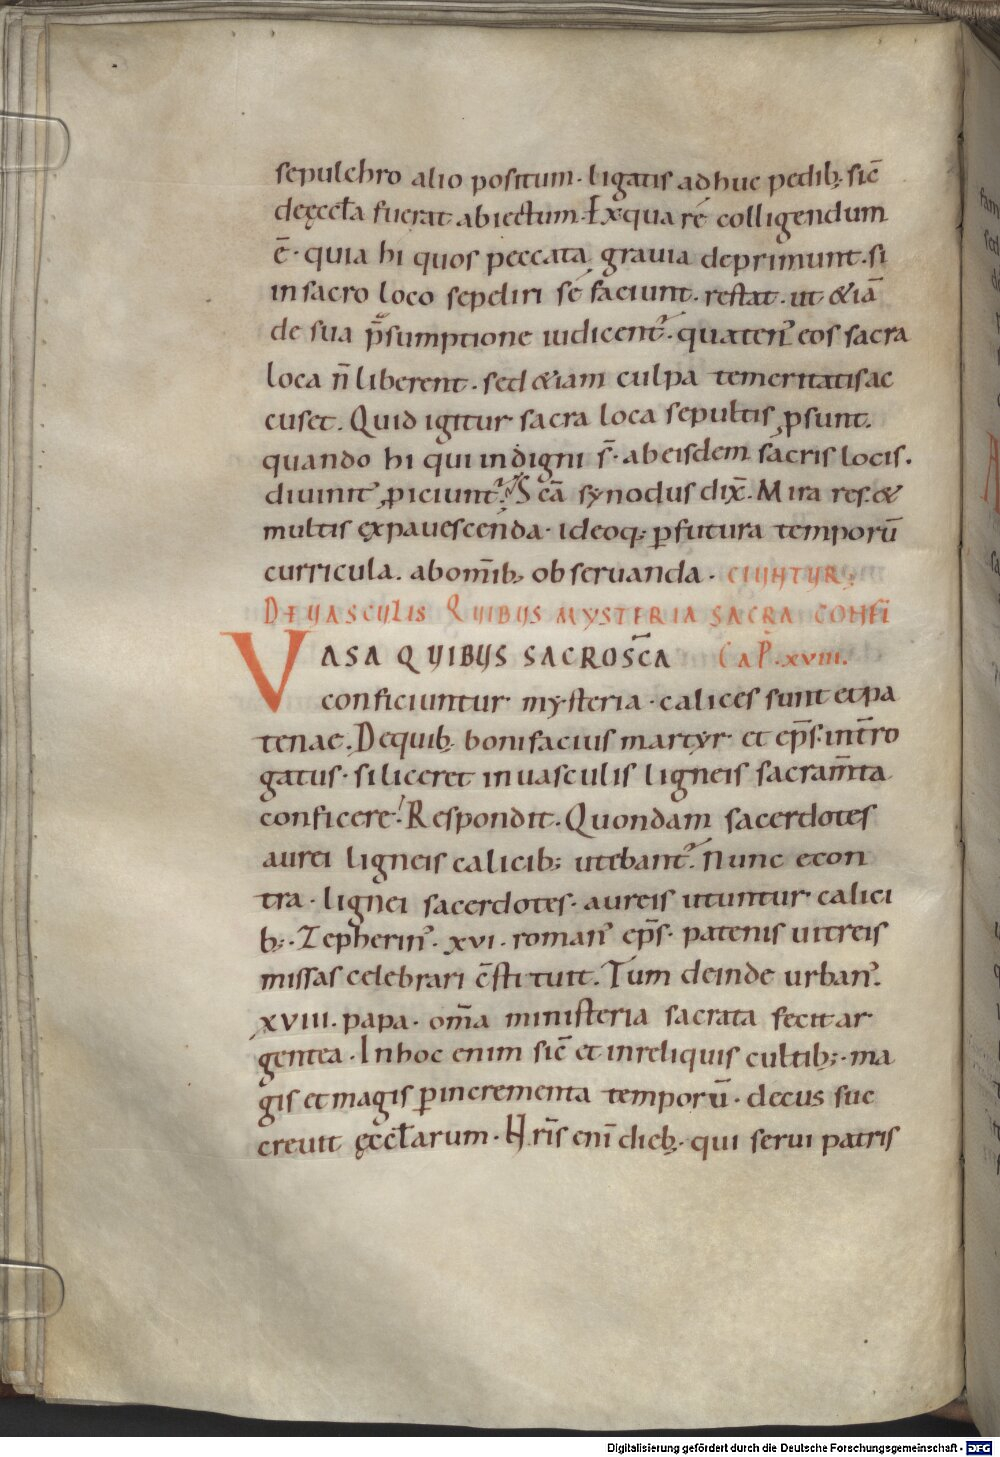 sepulchro alio positum· ligatis adhuc pedib; sic̄
de ęccl̄a fuerat abiectum· Ex qua re colligendum
ē· quia hi quos peccata gravia deprimunt· si
in sacro loco sepeliri se faciunt· restat· ut &iā
de sua p̄sumptione iudicent᷑· quaten᾽ eos sacra
loca n̄ liberent· sed &iam culpa temeritatis ac
cuset. Quid igitur sacra loca sepultis ꝓsunt.
quando hi qui indigni s̄· ab eisdem sacris locis.
divinit᾽ ꝓiciunt᷑. Sc̄a synodus dix̄. Mira res· &
multis expavescenda· ideoq; ꝑ futura temporū
curricula. ab om̄ib; observanda· CIUNTUR;
DE VASCULIS QUIBUS MYSTERIA SACRA CONFI
VASA QUIBUS SACROSC̄A CAP. XVIII.
conficiuntur mysteria· calices sunt et pa
tenae. De quib; bonifacius martyr et ep̄s· int̄ro
gatus· si liceret in vasculis ligneis sacram̄ta
conficere. Respondit. Quondam sacerdotes
aurei ligneis calicib; utebant᷑. Nunc econ
tra· lignei sacerdotes· aureis utuntur calici
b;· Zepherin᾽· xvi· roman᾽ ep̄s· patenis vitreis
missas celebrari c̄stituit. Tum deinde urban᾽.
xviii. papa· om̄a ministeria sacrata fecit ar
gentea· In hoc enim sic̄ et in reliquis cultib;· ma
gis et magis ꝑ incrementa temporū· decus suc
crevit ęccl̄arum· Nr̄is eni᷑ dieb;· qui servi patris
Digitalisierung gefördert durch die Deutsche Forschungsgemeinschaft - DFG